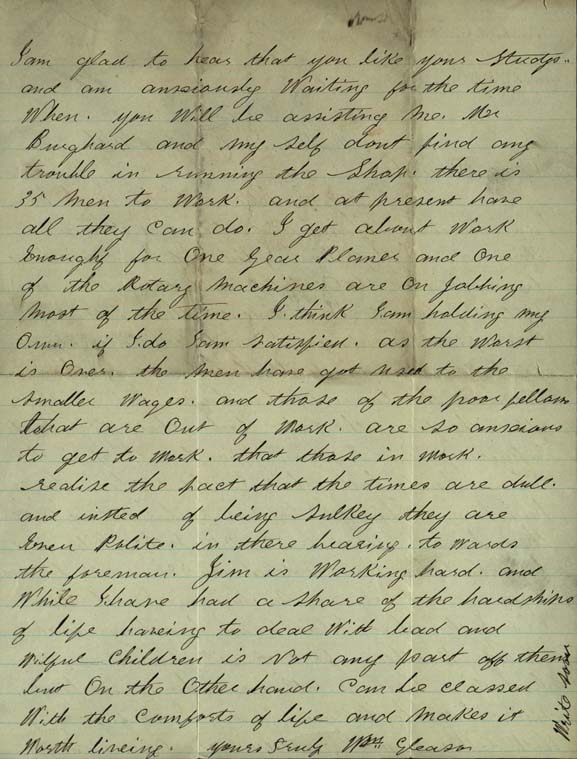 I am glad to hear that you like your Studys.
and am anxiously Waiting for the time
When. you Will be assisting Me. Mr
Burghard and my self dont find any
trouble in running the Shop. there is
35 Men to Work. and at present have
all they Can do. I get about Work
Enought for One Gear Planer and One
of the Rotary Machines are On Jobbing
Most of the time. I. think I am holding my
Own. if I. do I am Satisfied. as the Worst
is Over. the Men have got used to the
Smaller Wages. and those of the poor fellows
that are Out of Work. are so anxious
to get to Work. that those in Work.
realise the fact that the times are dull.
and insted of being Sulkey they are
Even Polite. in there bearing. to wards
the foreman. Jim is Working hard. and
While I have had a Share of the hardships
of life haveing to deal With bad and
Wilful Children is Not any part off them
but On the Other hand. Can be Classed
With the Comforts of life and Makes it
Worth liveing. yours Truly Wm Gleason
Write soon